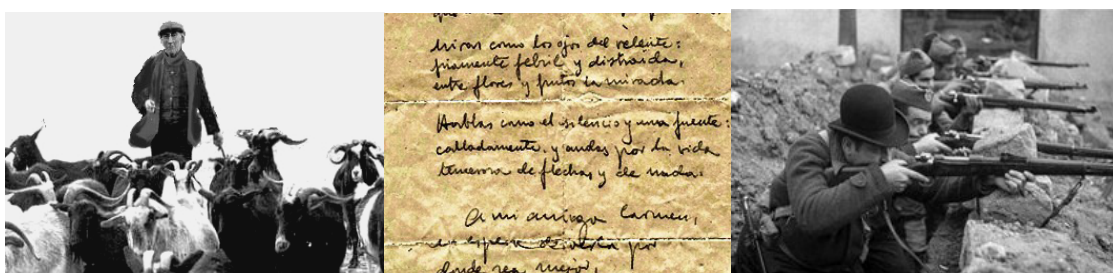 Miras como los ojos del relente:
febril y distraida,
entre flores y frutos la mirada.
Hablas como el silencio y una fuente:
calladamente, y andas por la vida
temerosa de flechas y de nada.
A mi amiga Carmen,
por
donde sea mejor,